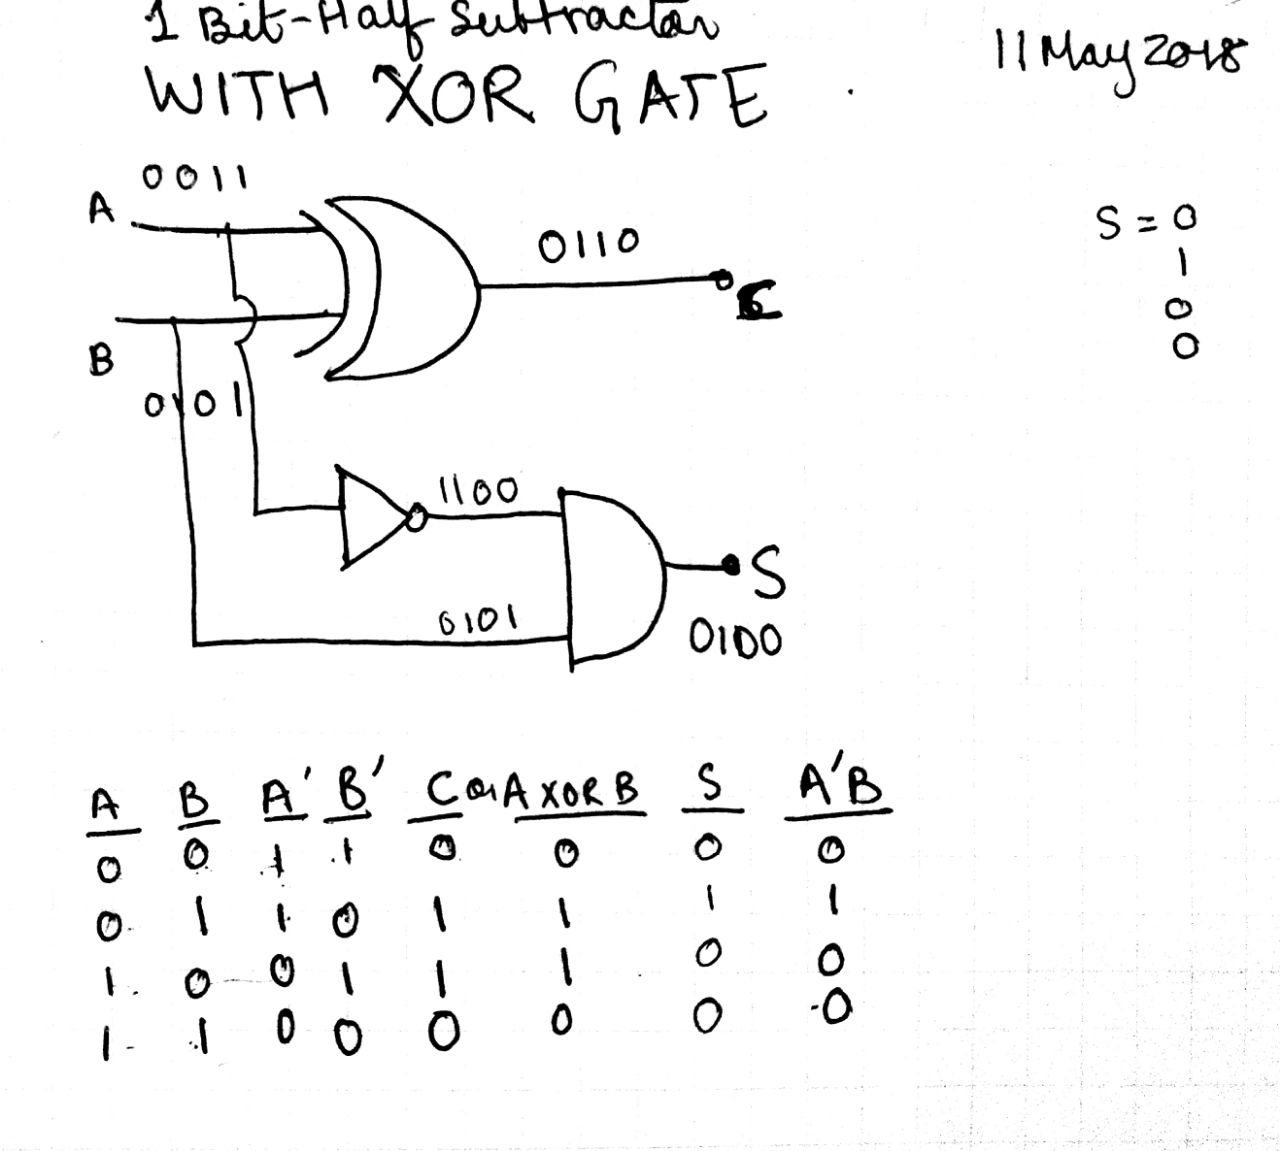 1 Bit-Half Subtractor
WITH XOR GATE
11 May 2018
0011
A
0110
C
B
0101
S = 0
1
0
0
1100
0101
S
0100
A B A' B' C or A XOR B S A'B
0 0 1 1 0 0 0 0
0 1 1 0 1 1 1 1
1 0 0 1 1 1 0 0
1 1 0 0 0 0 0 0